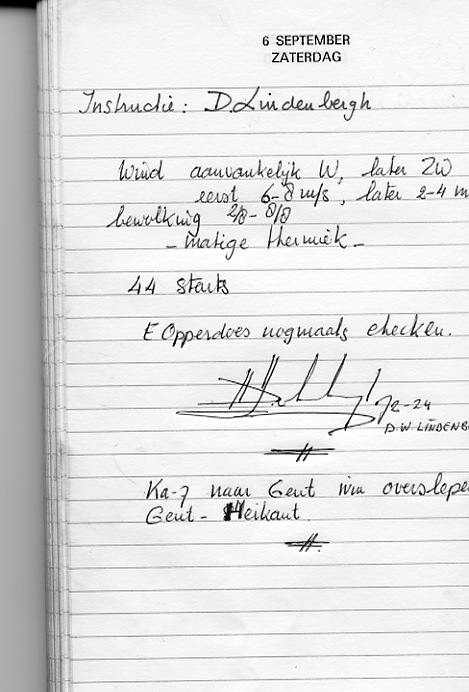 6 SEPTEMBER
ZATERDAG
Instructie: D. Lindenbergh
Wind aanvankelijk W, later ZW
eerst 6-8 m/s, later 2-4 m
bewolking 2/8 - 8/8
- matige thermiek -
44 starts
E Opperdoes nogmaals checken.
72-24
D.W LINDENB
Ka-7 naar Gent ivm overslepe
Gent - Heikant.